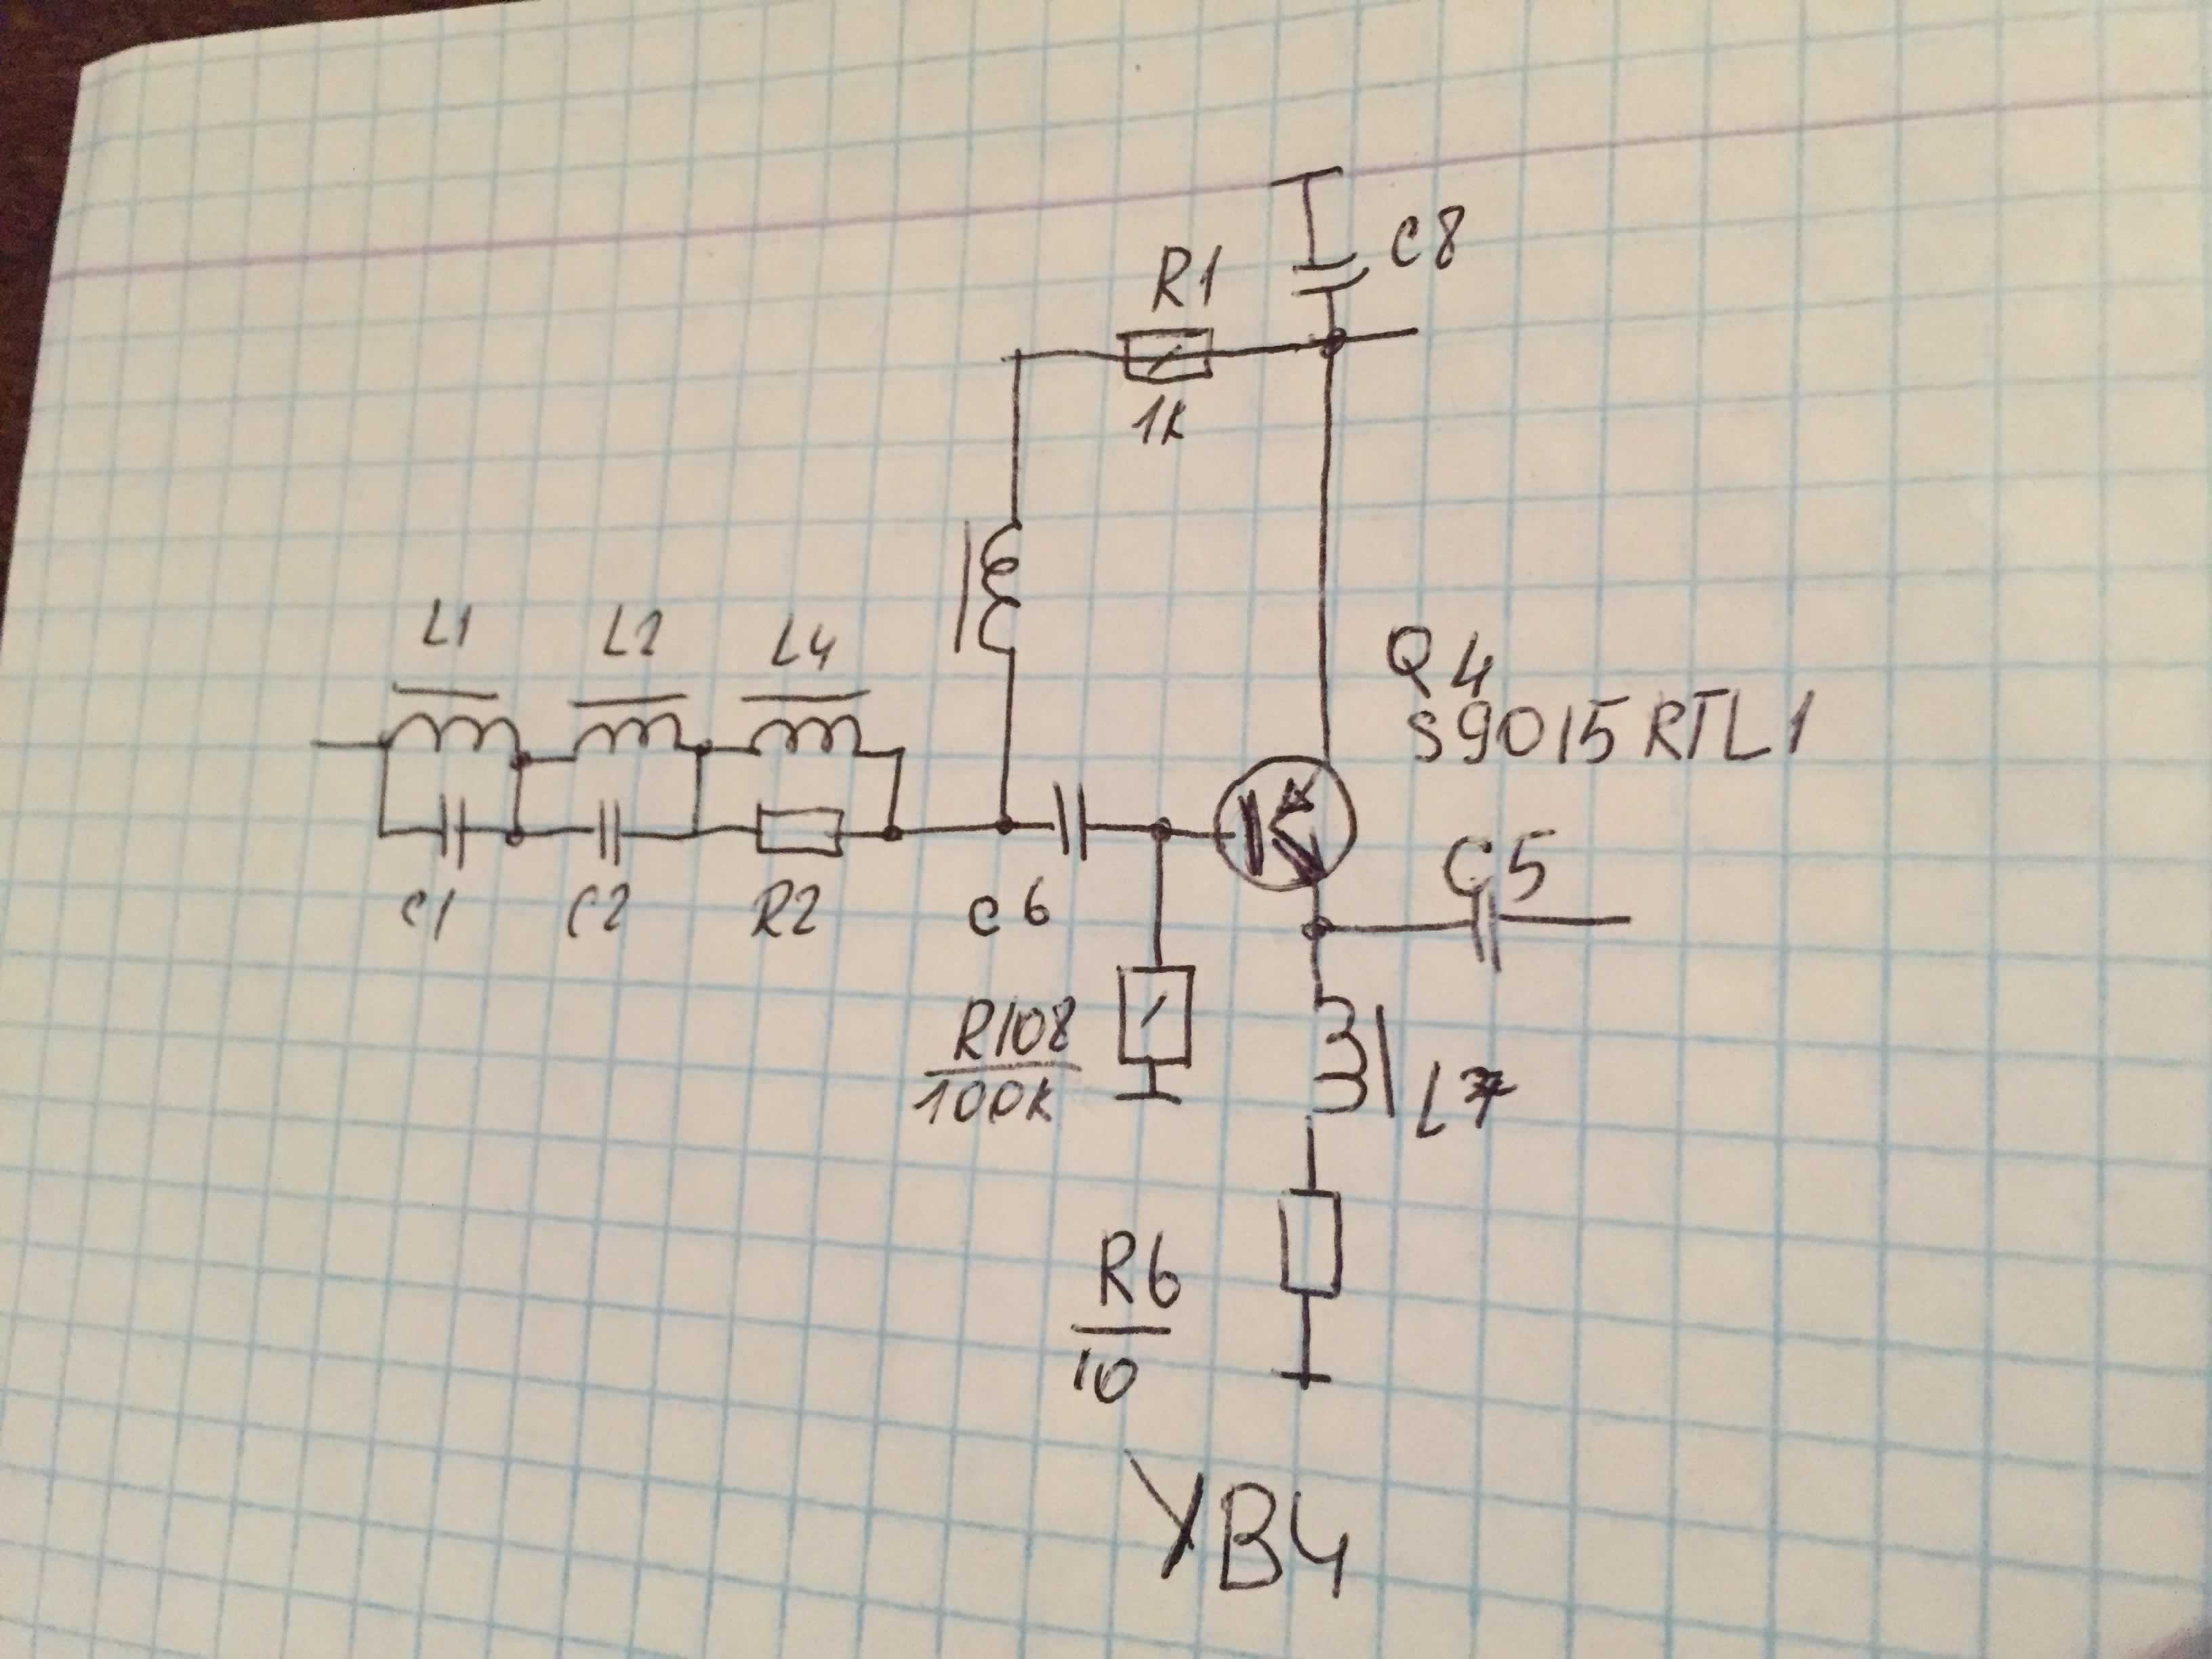 C8
R1
1k
L1
L2
L4
Q4
S9015RTL1
C5
C1
C2
R2
C6
R108
100k
L7
R6
10
УВЧ